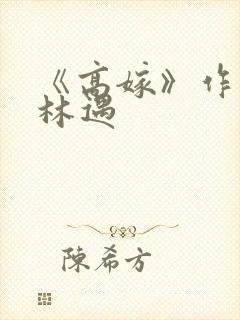 《高嫁》作
林遇
陳希方